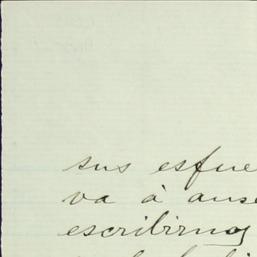 sus esfue
va à ause
escribirnos